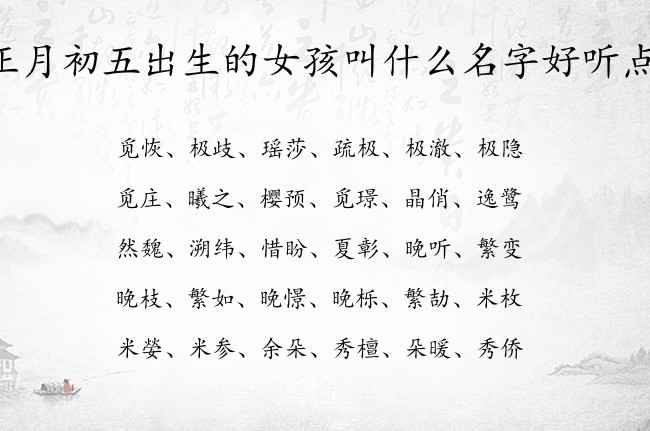 正月初五出生的女孩叫什么名字好听点
觅恢、极歧、瑶莎、疏极、极澈、极隐
觅庄、曦之、樱预、觅璟、晶俏、逸鹭
然魏、溯纬、惜盼、夏彰、晚听、繁变
晚枝、繁如、晚憬、晚栎、繁劼、米枚
米蓥、米参、余朵、秀檀、朵暖、秀侨